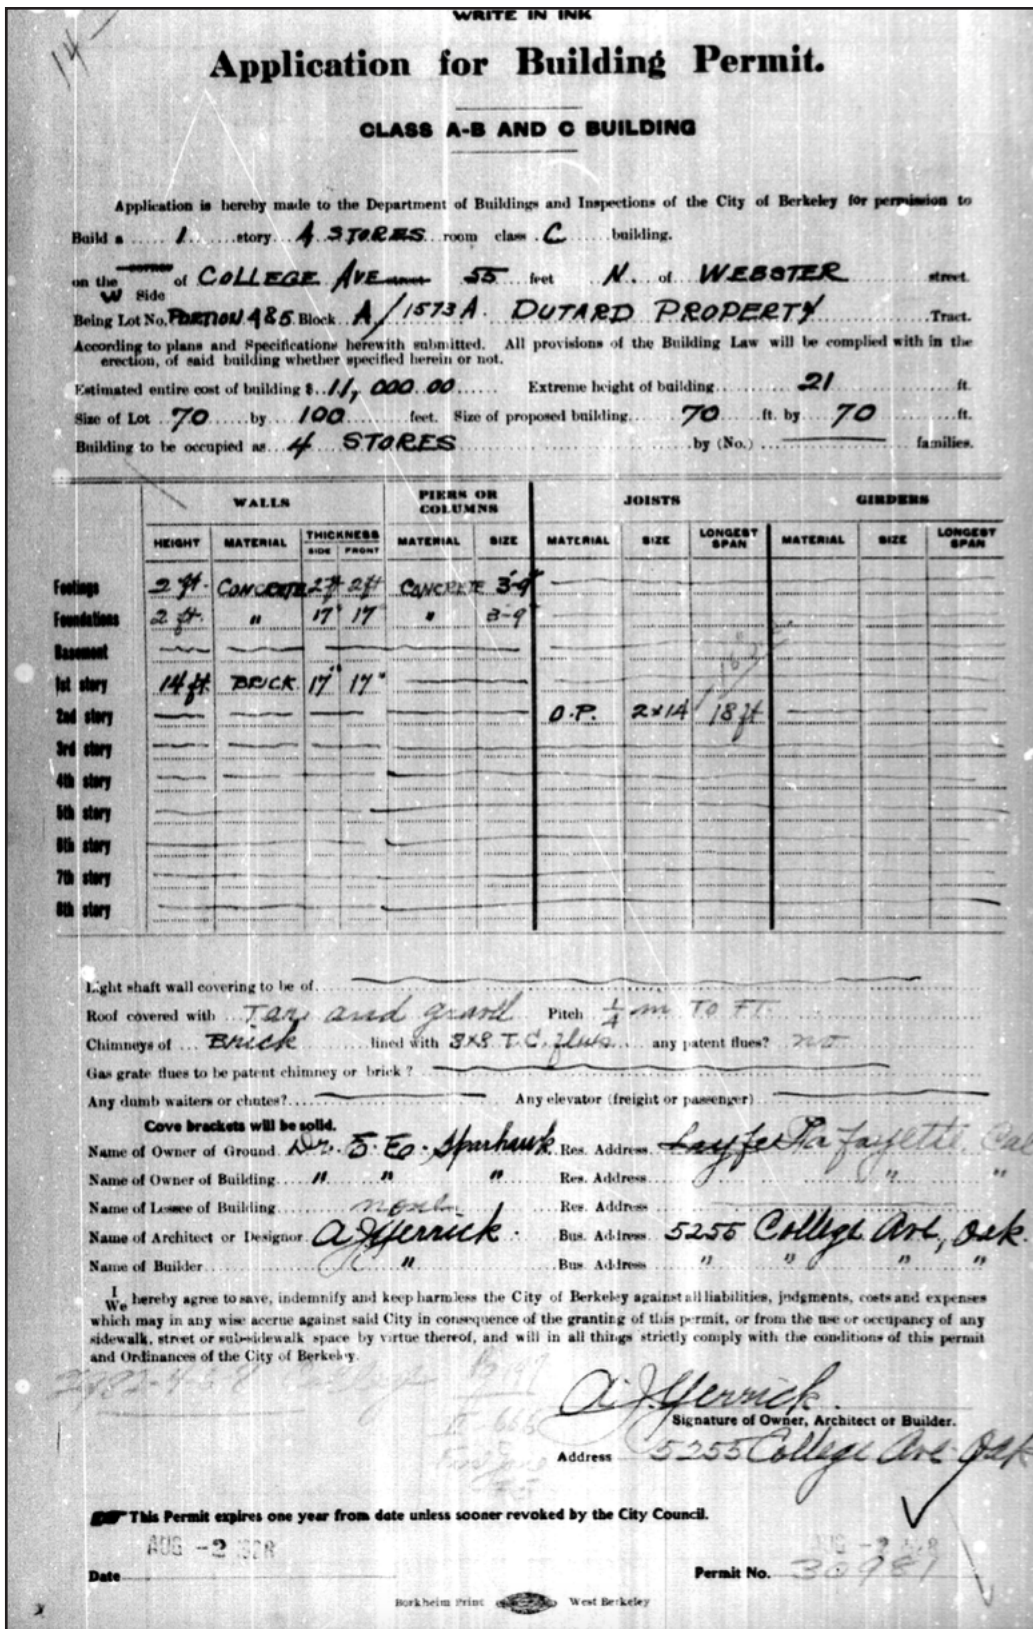 WRITE IN INK
14-
Application for Building Permit.
CLASS A-B AND C BUILDING
Application is hereby made to the Department of Buildings and Inspections of the City of Berkeley for permission to
Build a 1 story 4 STORES room class C building.
on the corner of COLLEGE AVE 55 feet N. of WEBSTER street.
W Side
Being Lot No. PORTION 4 & 5 Block A/1573A. DUTARD PROPERTY Tract.
According to plans and Specifications herewith submitted. All provisions of the Building Law will be complied with in the
erection, of said building whether specified herein or not.
Estimated entire cost of building $ 11,000.00 Extreme height of building 21 ft.
Size of Lot 70 by 100 feet. Size of proposed building 70 ft. by 70 ft.
Building to be occupied as 4 STORES by (No.) families.
WALLS PIERS OR COLUMNS JOISTS GIRDERS
HEIGHT MATERIAL THICKNESS SIDE FRONT MATERIAL SIZE MATERIAL SIZE LONGEST SPAN MATERIAL SIZE LONGEST SPAN
Footings 2 ft. CONCRETE 2 ft 2 ft CONCRETE 3'-9"
Foundations 2 ft. " 17" 17" " 3-9"
Basement
1st story 14 ft BRICK 17" 17"
2nd story O.P. 2x14 18 ft
3rd story
4th story
5th story
6th story
7th story
8th story
Light shaft wall covering to be of
Roof covered with Tar and gravel Pitch 1/4 in TO FT.
Chimneys of Brick lined with 8x8 T.C. flues any patent flues? no
Gas grate flues to be patent chimney or brick?
Any dumb waiters or chutes? Any elevator (freight or passenger)
Cove brackets will be solid.
Name of Owner of Ground Dr. E. Eo. Sparhawk Res. Address Layfe La Fayette Cal
Name of Owner of Building " " " Res. Address " "
Name of Lessee of Building none Res. Address
Name of Architect or Designor A J Yerrick. Bus. Address 5255 College Ave, Oak.
Name of Builder " Bus. Address " " " "
I
We hereby agree to save, indemnify and keep harmless the City of Berkeley against all liabilities, judgments, costs and expenses
which may in any wise accrue against said City in consequence of the granting of this permit, or from the use or occupancy of any
sidewalk, street or sub-sidewalk space by virtue thereof, and will in all things strictly comply with the conditions of this permit
and Ordinances of the City of Berkeley.
A. J. Yerrick.
Signature of Owner, Architect or Builder.
Address 5255 College Ave Oak
This Permit expires one year from date unless sooner revoked by the City Council.
AUG -2 1928
Date Permit No. 30981
Borkheim Print West Berkeley